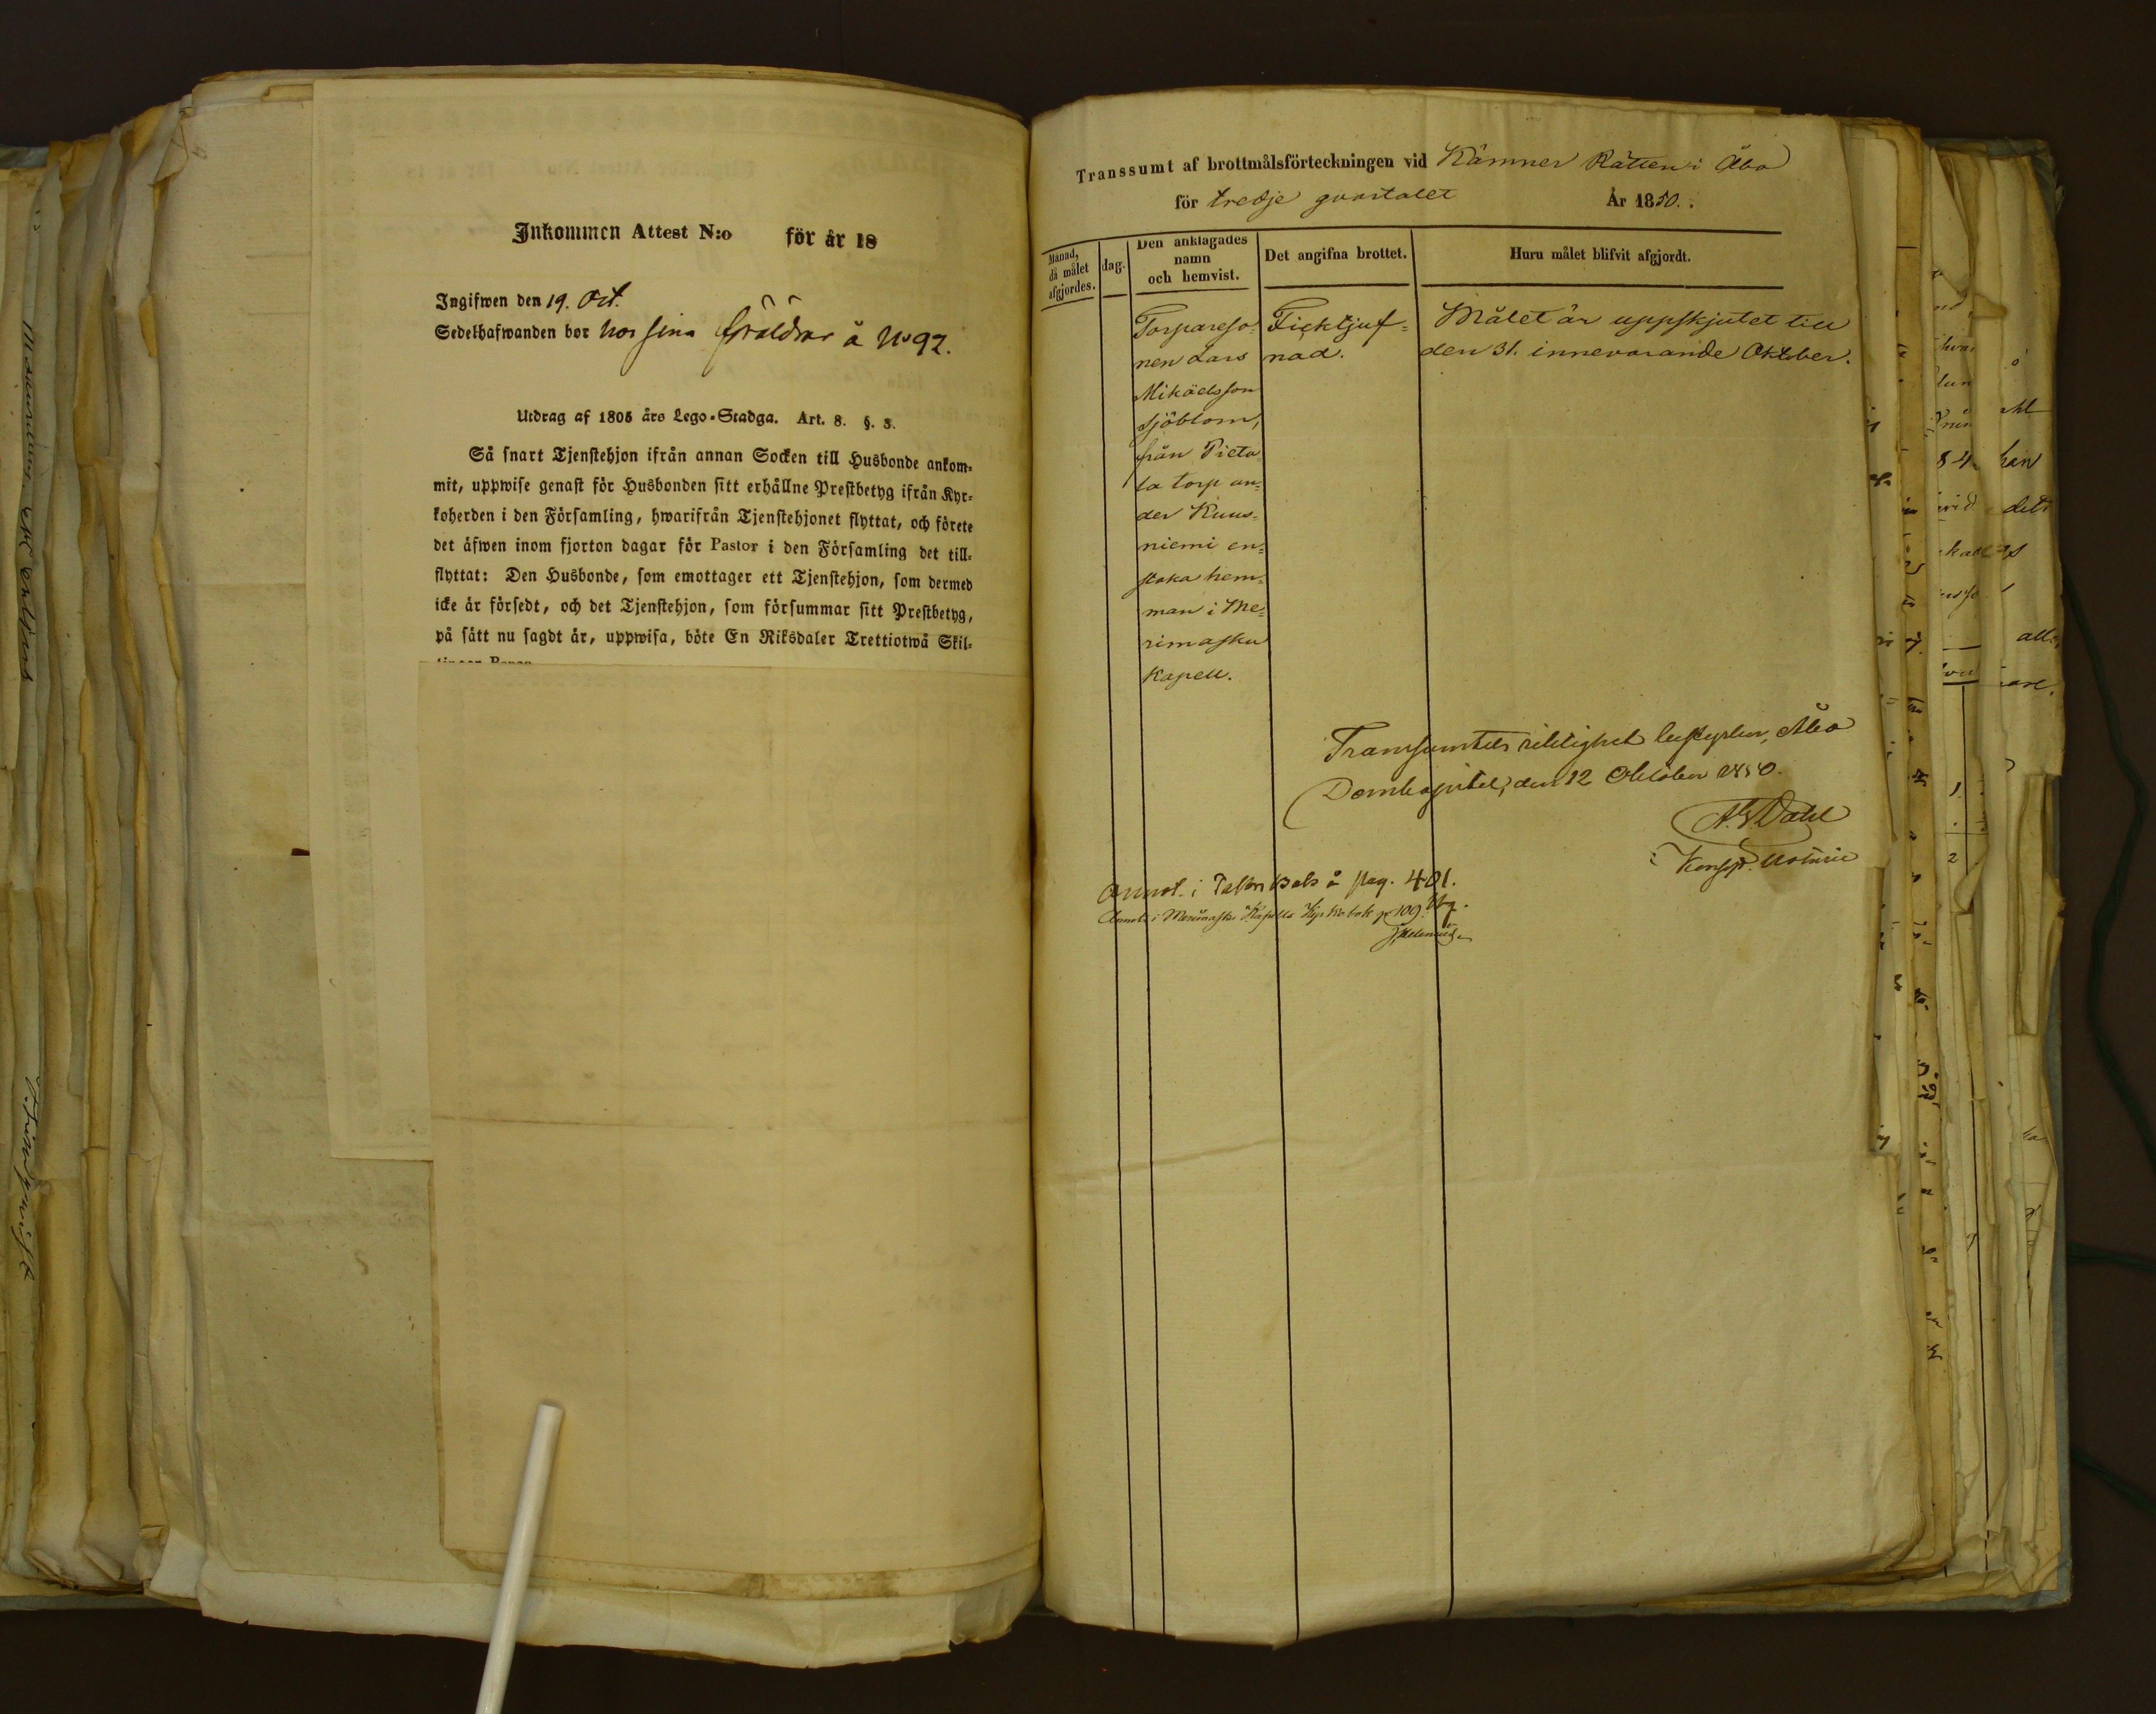 Inkommen Attest N:o för år 18
Ingifwen den 19. Oct.
Sedelhafwanden bor hos sina föräldrar å No 92.
Utdrag af 1805 års Lego-Stadga. Art. 8. §. 3.
Så snart Tjenstehjon ifrån annan Socken till Husbonde ankom-
mit, uppwise genast för Husbonden sitt erhållne Prestbetyg ifrån Kyr-
koherden i den Församling, hwarifrån Tjenstehjonet flyttat, och förete
det äfwen inom fjorton dagar för Pastor i den Församling det till-
flyttat: Den Husbonde, som emottager ett Tjenstehjon, som dermed
icke är försedt, och det Tjenstehjon, som försummar sitt Prestbetyg,
på sätt nu sagdt är, uppwisa, böte En Riksdaler Trettiotwå Skil-
Transsumt af brottmålsförteckningen vid Kämner Rätten i Åbo
för tredje qvartalet År 1850.
Månad,
då målet
afgjordes.
dag.
Den anklagades
namn
och hemvist.
Det angifna brottet.
Huru målet blifvit afgjordt.
Torpareso-
nen Lars
Mikaelsson
Sjöblom,
från Pieta-
la torp un-
der Kuus-
niemi en-
staka hem-
man i Me-
rimasku
Kapell.
Ficktjuf-
nad.
Målet är uppskjutet till
den 31. innevarande Oktober.
Transsumtets riktighet bestyrker, Åbo
Domkapitel, den 12 Oktober 1850.
A. G. Dahl
Konsist. Notarie
Annot. i Tafvsals å pag. 401.
Annot. i Merimasku Kapells Kyrkobok p. 109.